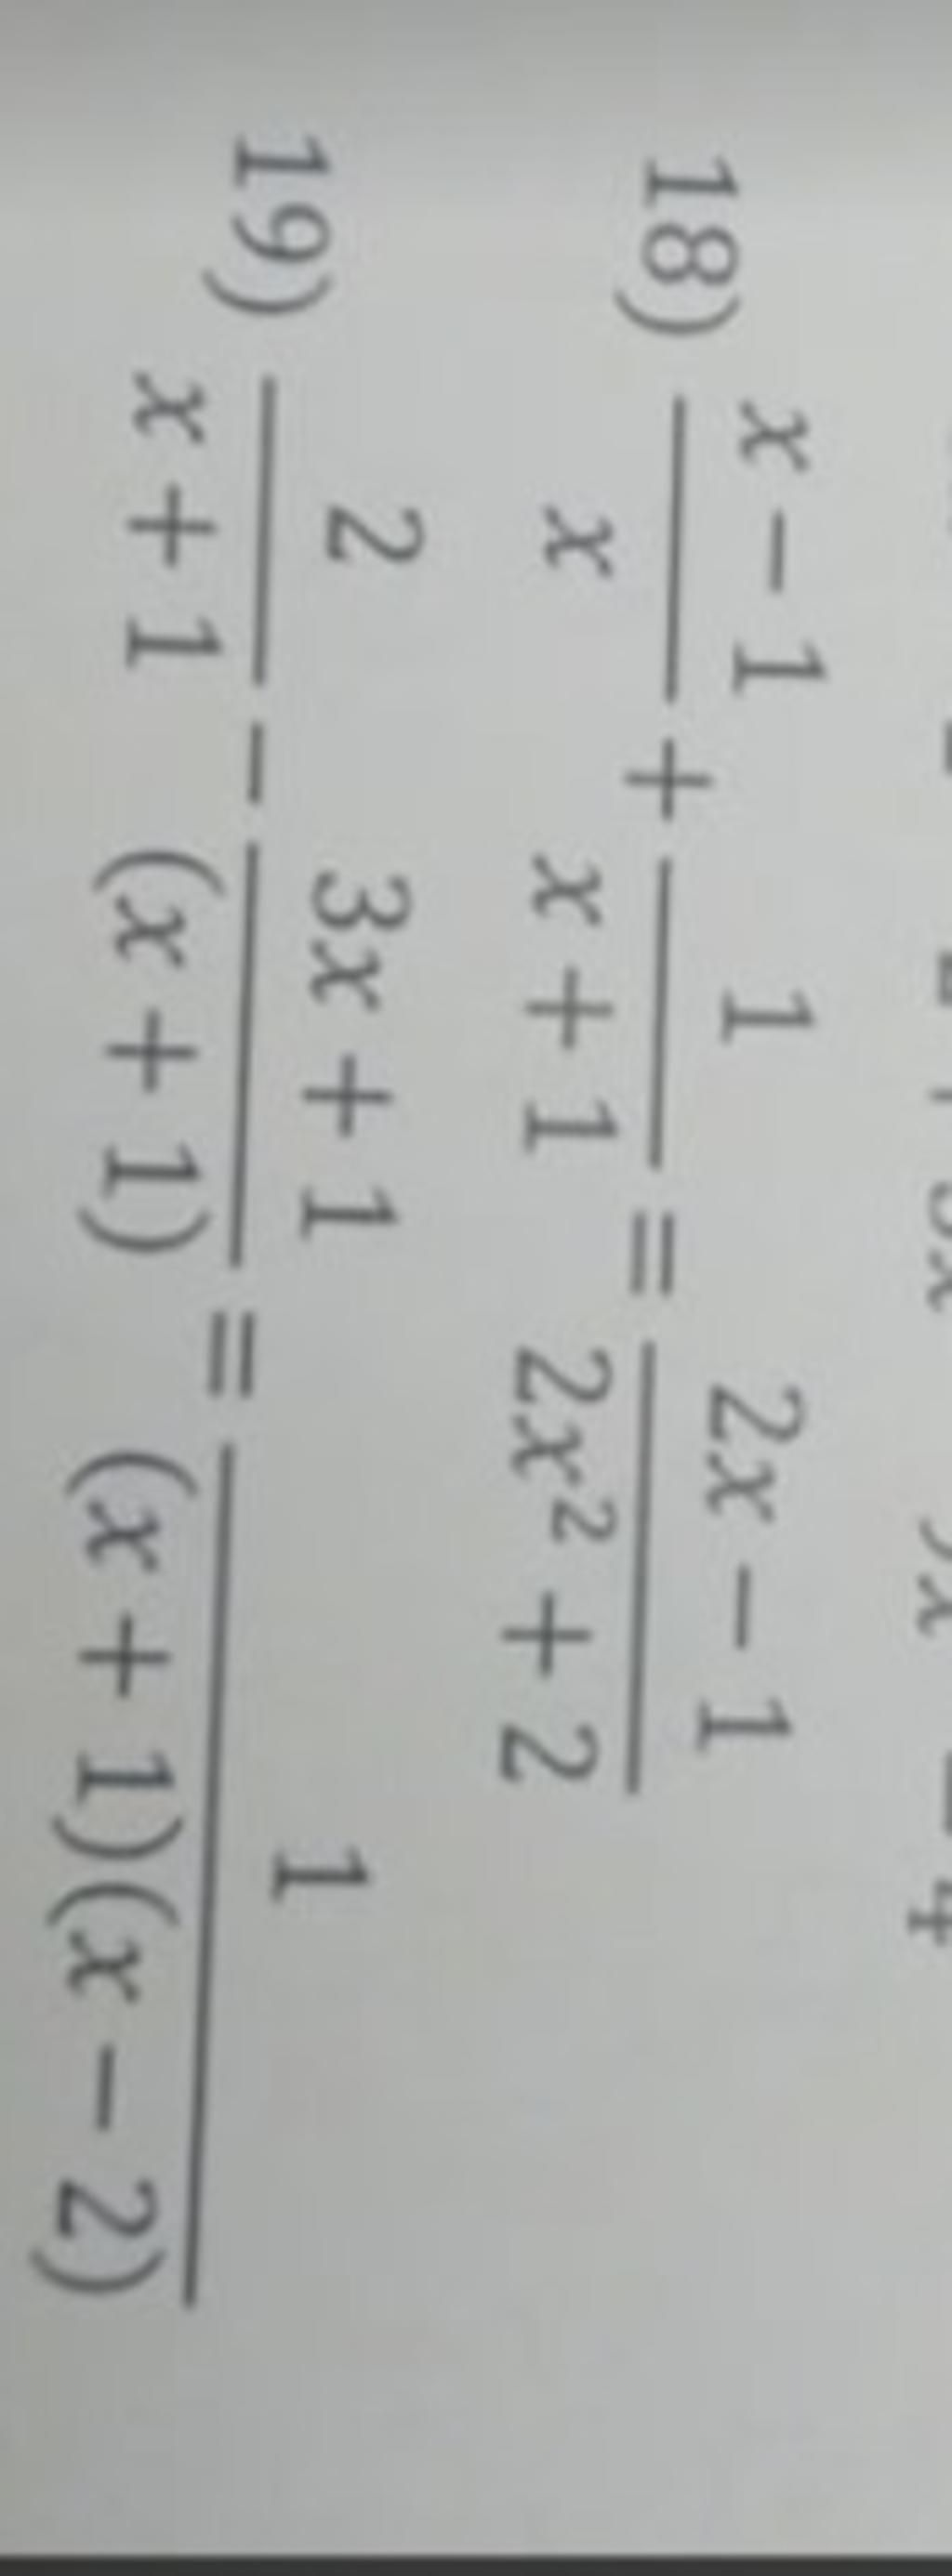 18) \frac{x-1}{x} + \frac{1}{x+1} = \frac{2x-1}{2x²+2}
19) \frac{2}{x+1} - \frac{3x+1}{(x+1)} = \frac{1}{(x+1)(x-2)}